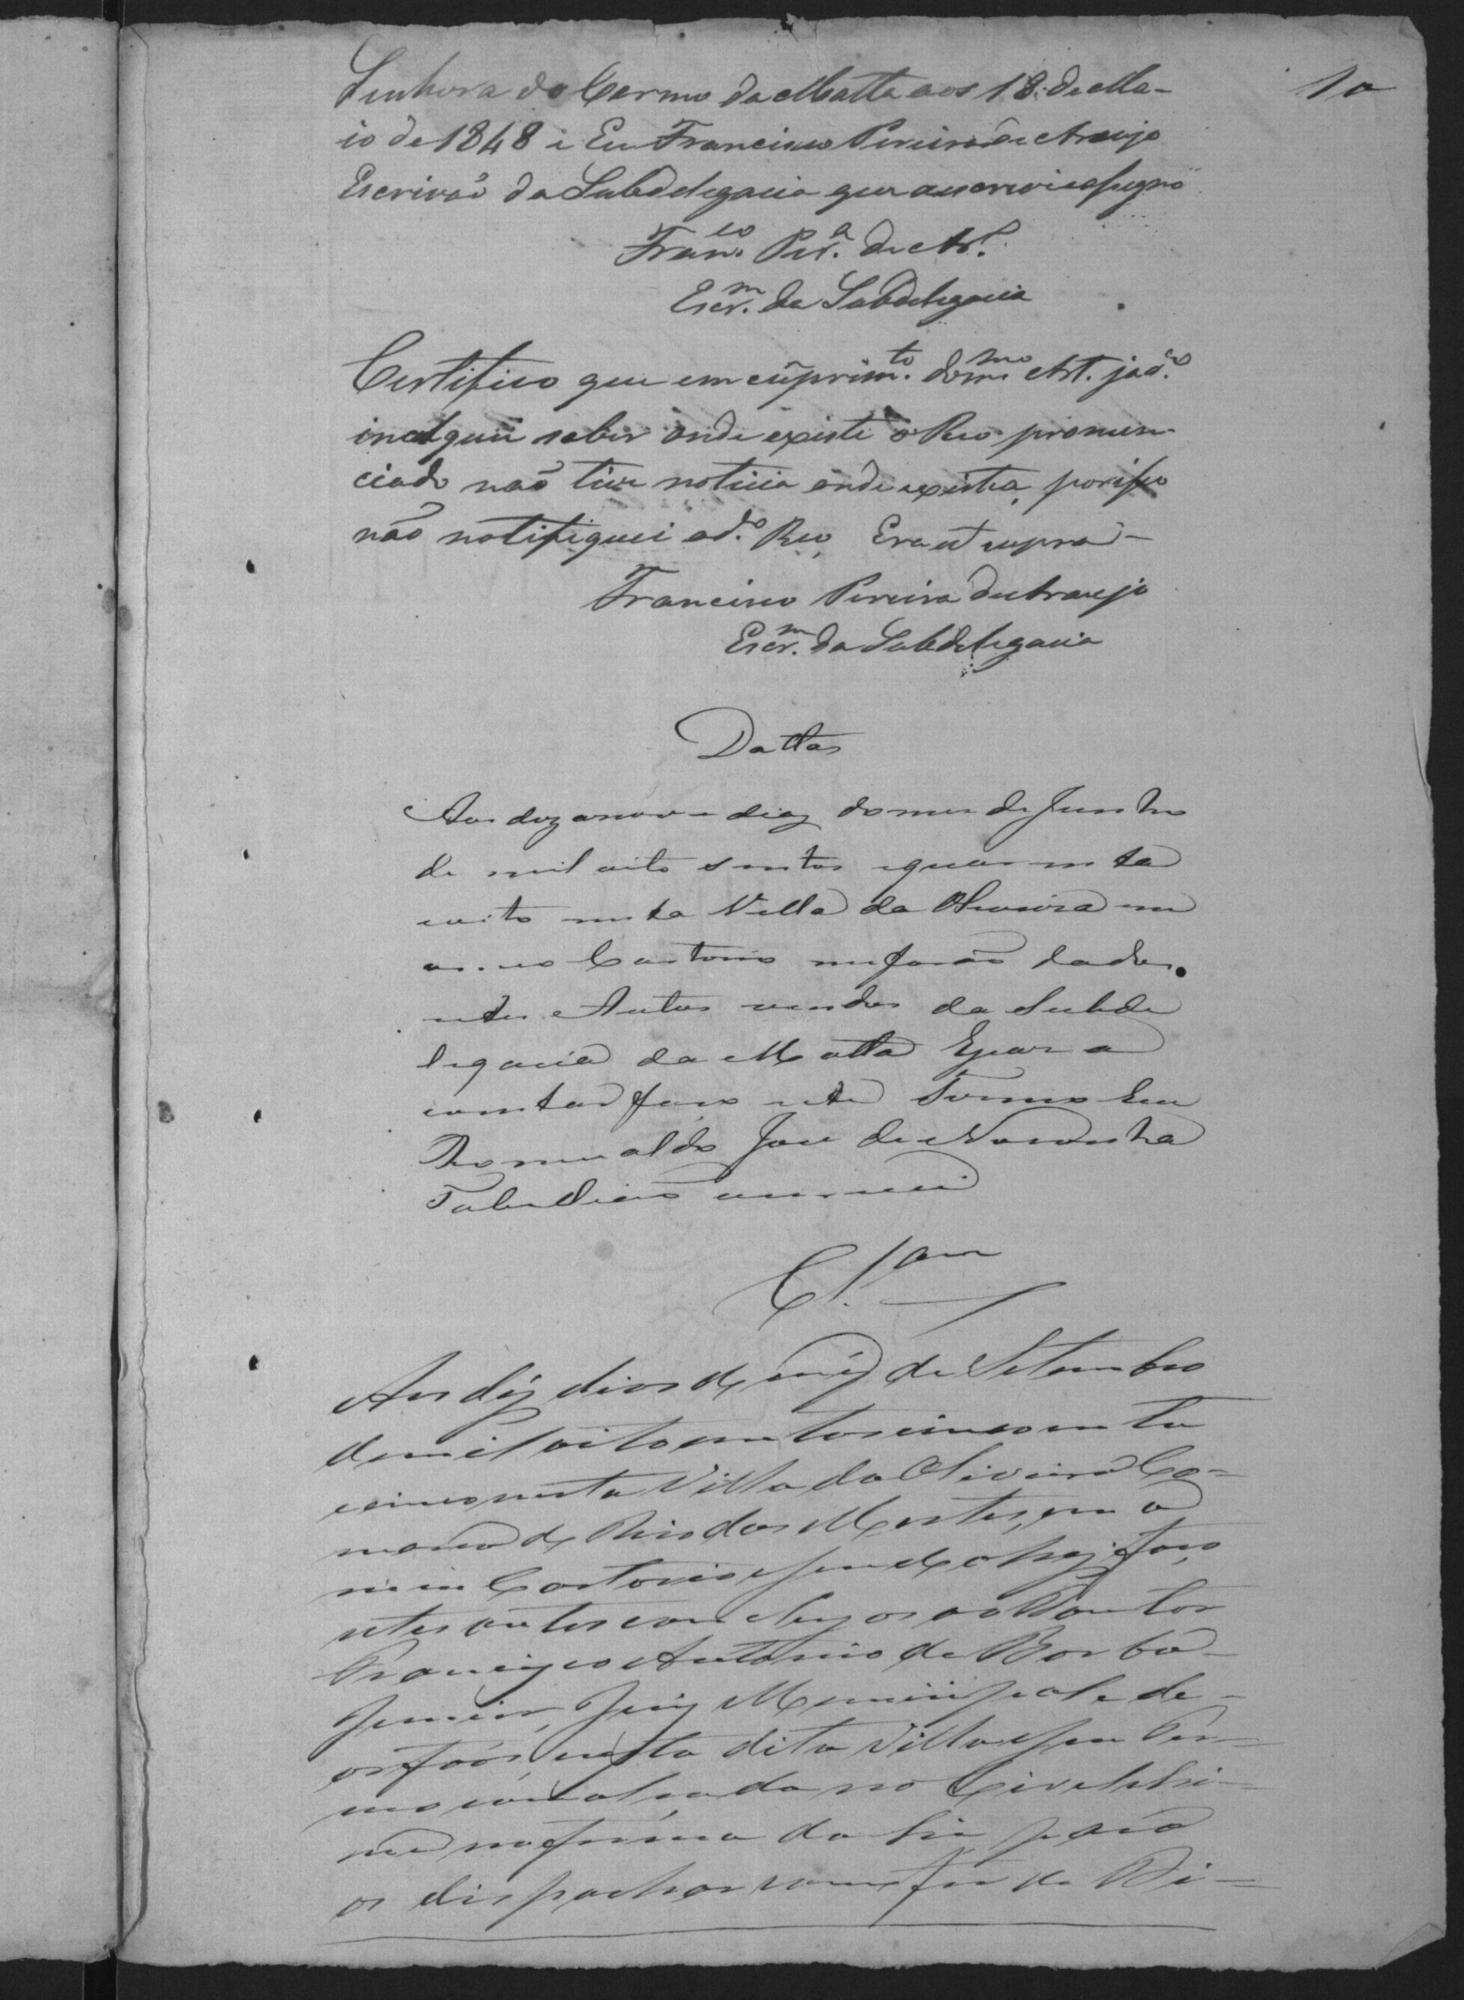 10
Senhora do Carmo da Matta aos 18 de Ma-
io de 1848 e Eu Francisco Pereira de Araujo
Escrivaõ da Subdelegacia que escrevi e assigno
Fran.co Per.a de Ar.o
Escr.m da Subdelegacia
Certifico que em cũprim.to do m.mo Art. ja d.o
indaguei saber onde existe o Reo pronun-
ciado naõ tive noticia onde exista, porisso
não notifiquei o d.o Reo, Era ut supra -
Francisco Pereira de Araujo
Escr.m da Subdelegacia
Dattas
Aos dozanove dias do mes de Junho
de mil oito sentos e quarenta
e oito nesta Villa da Oliveira em
o meu Cartorio me foraõ dados
estes Autos vindos da Subde
legacia da Matta E para
constar faço este Termo Eu
Romualdo José de Noronha
Tabelliaõ escrevi
Cl.sam
Aos déz dias do méz de Setembro
de mil oito centos cincoenta
e cinco nesta Villa da Oliveira Co-
marca do Rio das Mortes, em o
meu Cartorio e sendo ahi faço
estes autos conclusos ao Doutor
Francisco Antonio de Borba
Junior, Juiz Municipal e de
orfãos, nesta dita Villa e seu Ter-
mo com alçada no Civel e Cri-
me na forma da Lei para
os dispachar como for de Di-